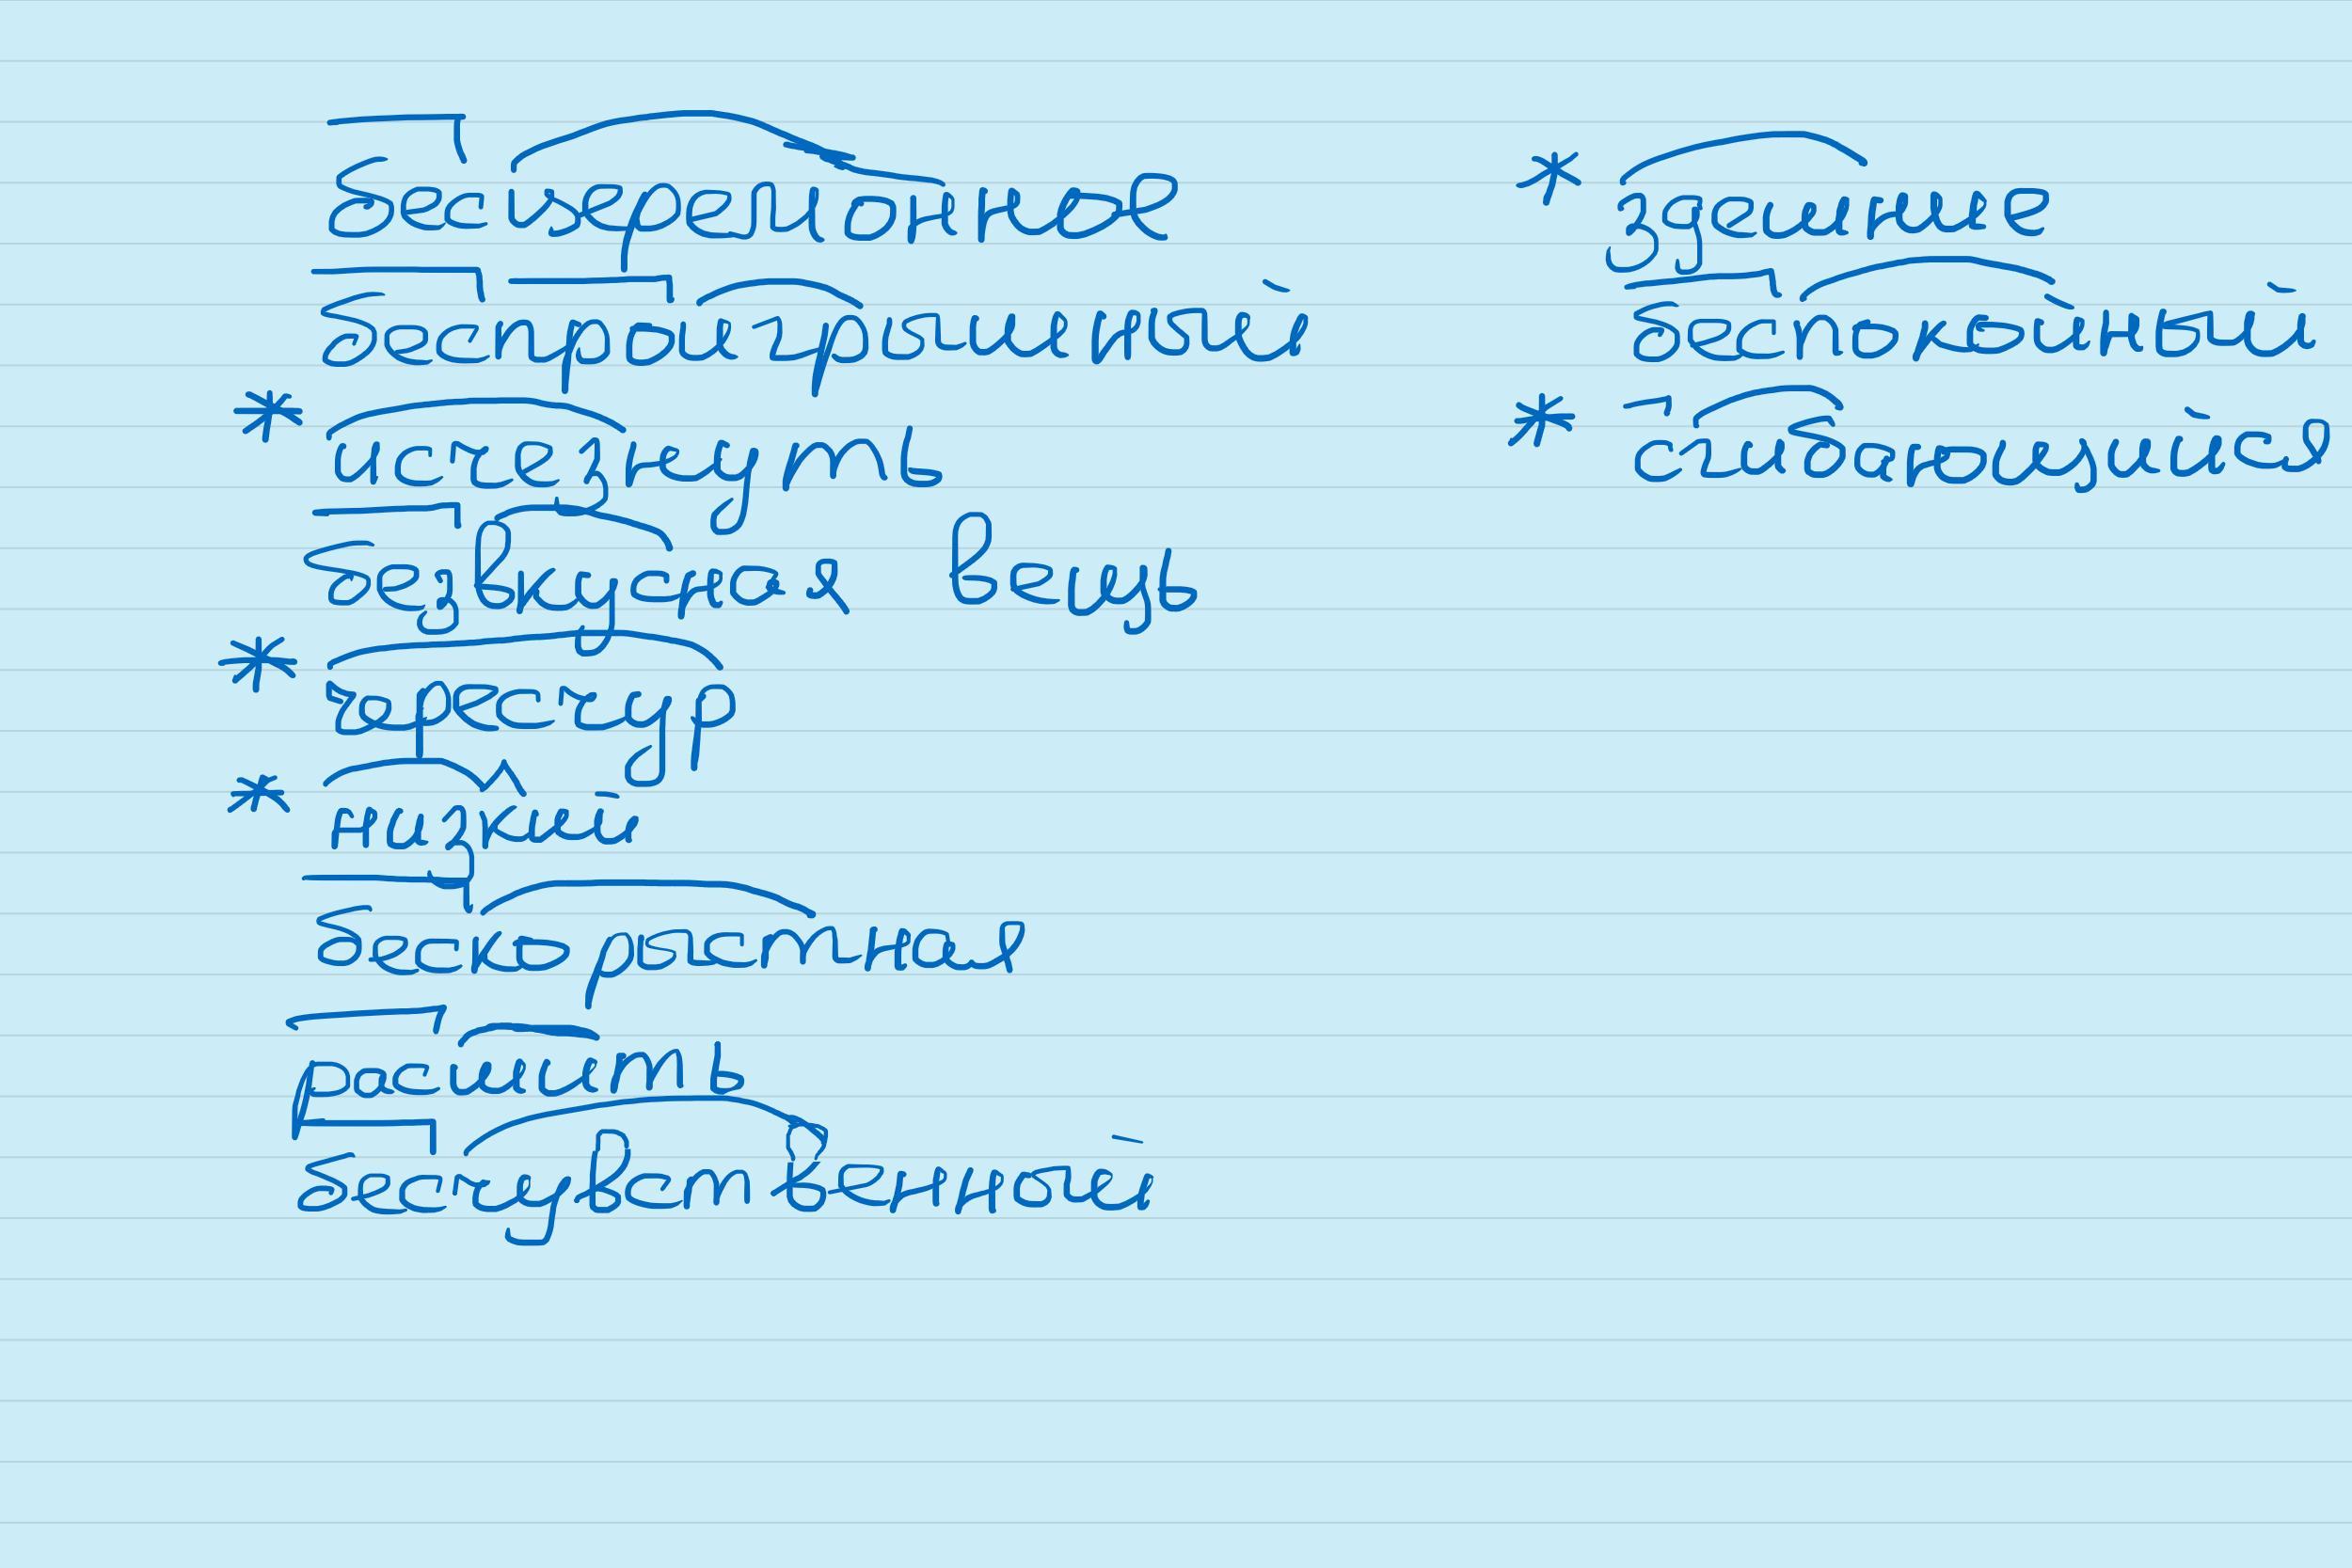 бесцеремонное
беспроигрышный
* исчезнуть
безвкусная вещь
* чересчур
* низкий
бескорыстная
расшить
бесчувственный
* здешние
беспокойный
* сгибающийся